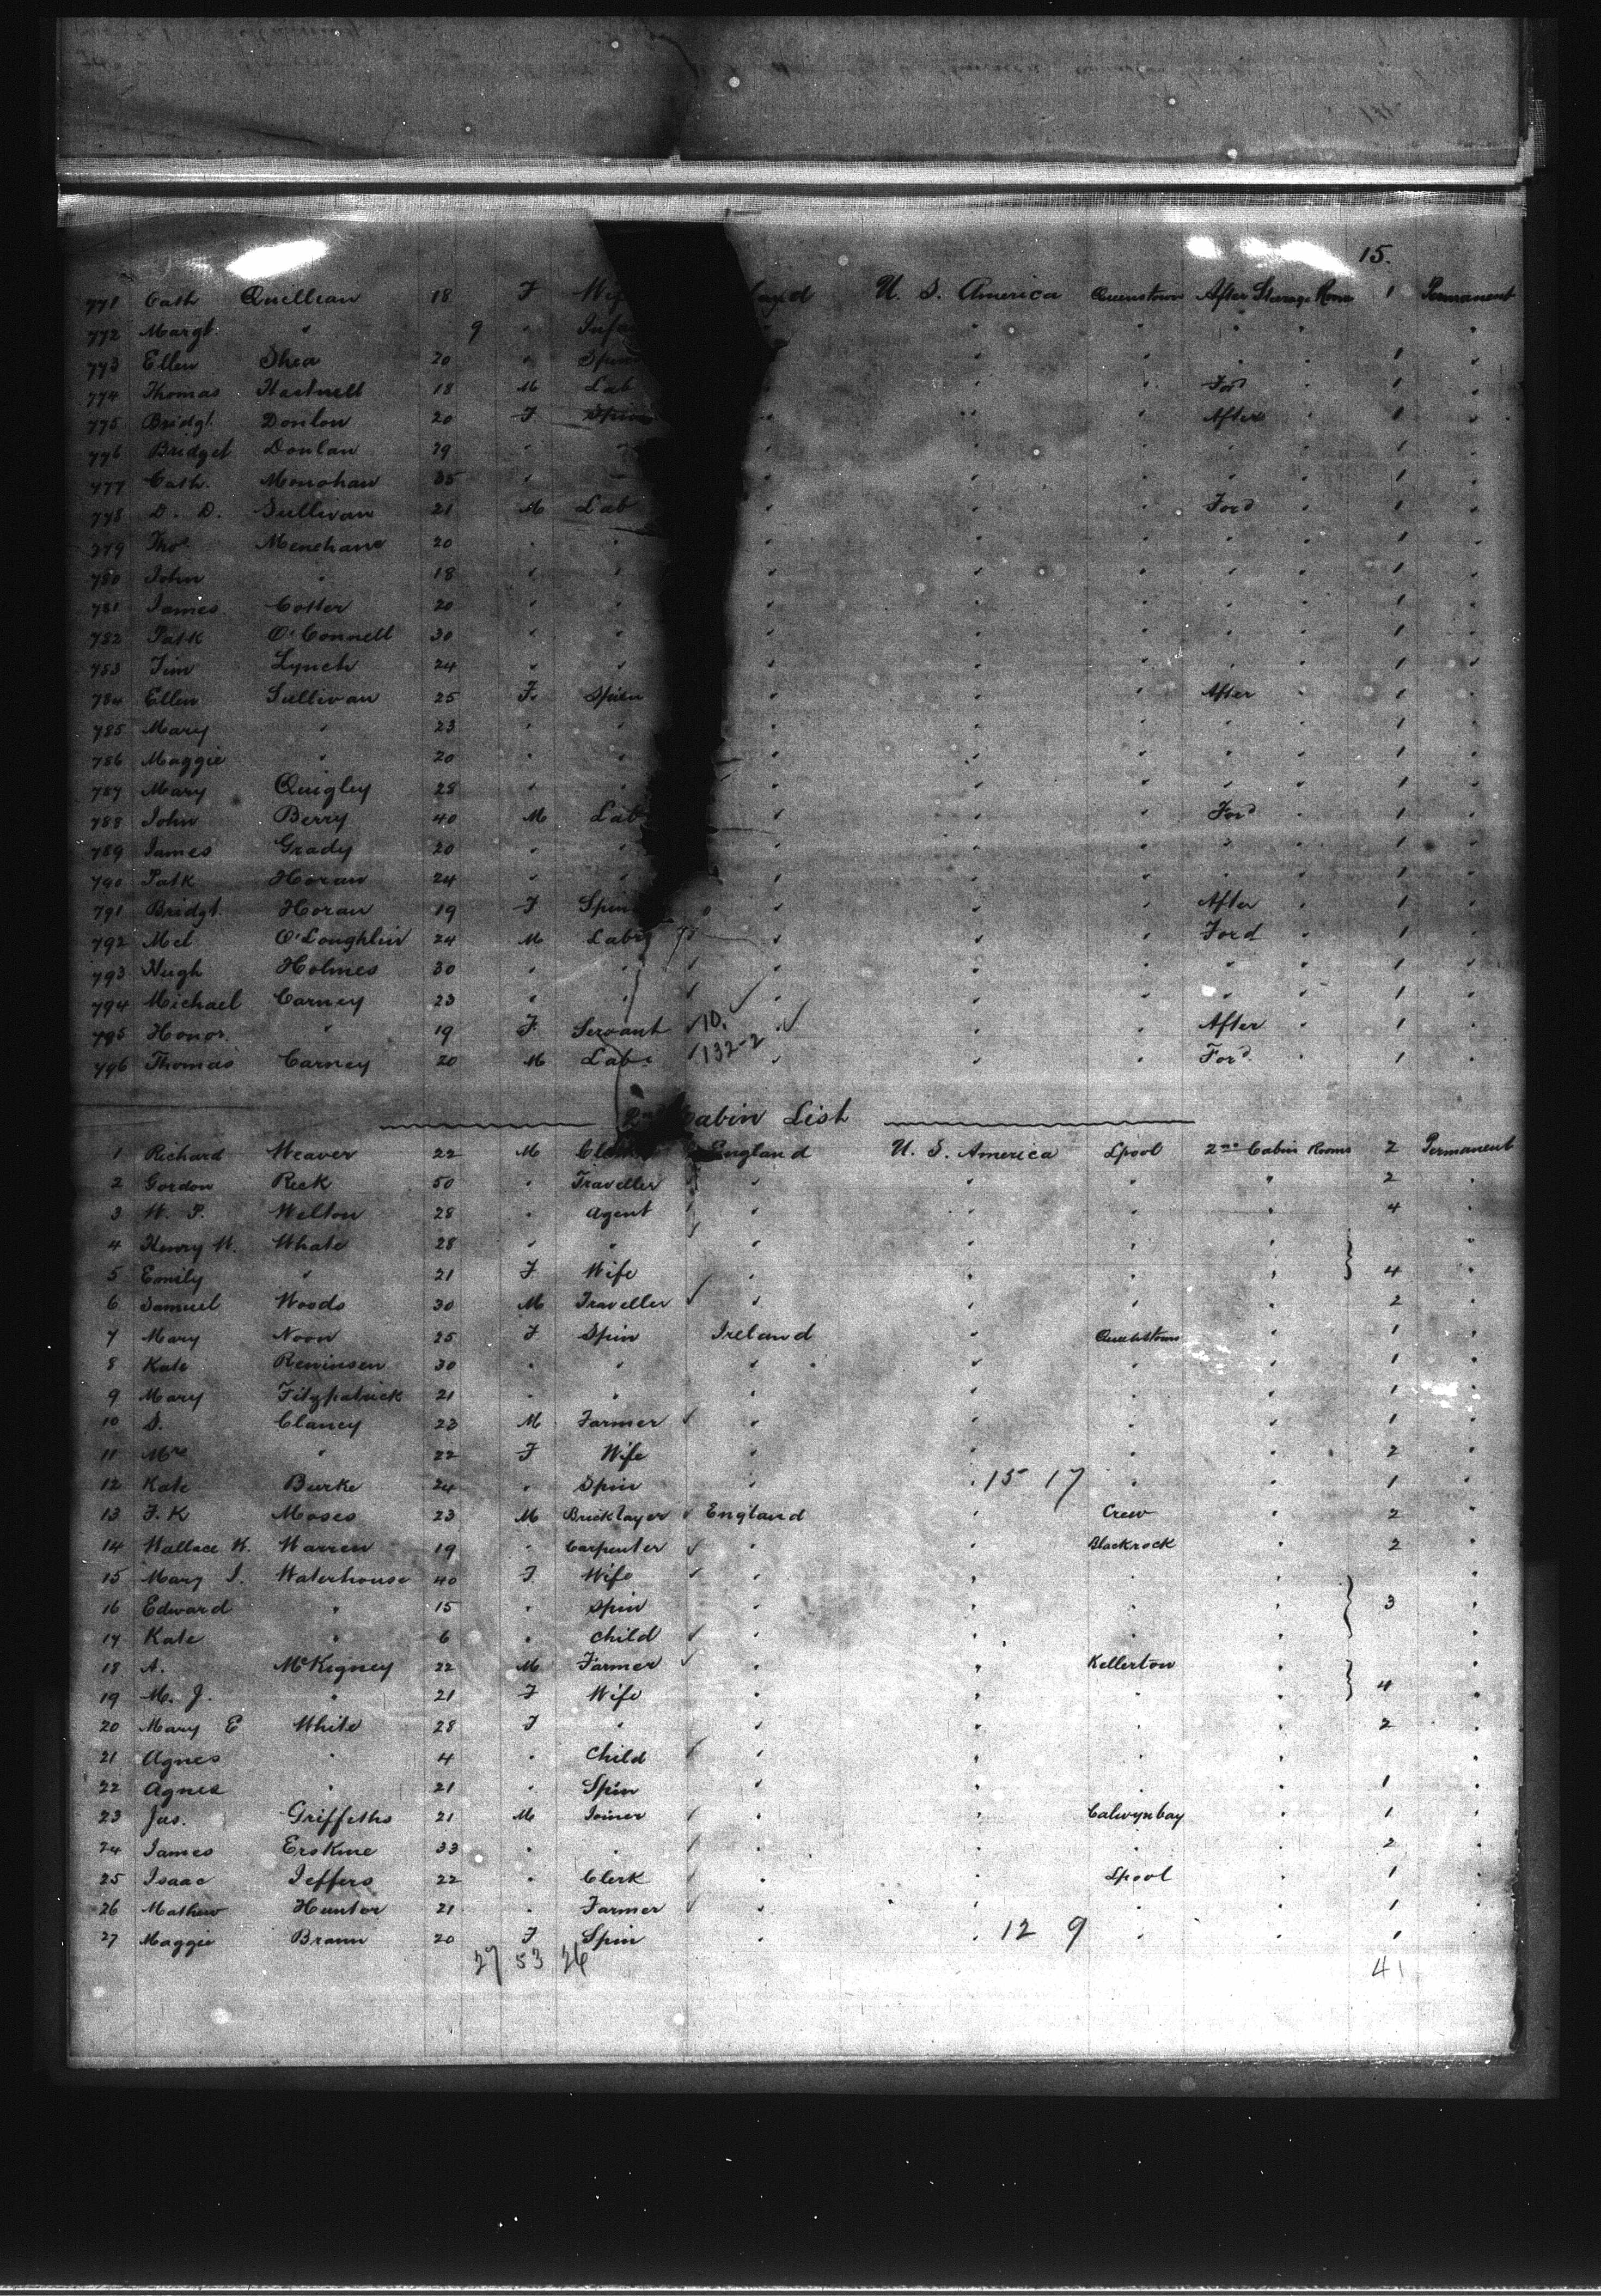 15.
771 Cath Quillian 18 F Wif land U. S. America Queenstown After Steerage Room 1 Permanent
772 Margt. " 9 " Infa " " " " " "
773 Ellen Shea 20 " Spin " " " " 1 "
774 Thomas Hartnell 18 M Lab " " " Ford " 1 "
775 Bridgt. Donlon 20 F Spin " " " After " 1 "
776 Bridget Donlan 29 " " " " " " " 1 "
777 Cath. Monohan 35 " " " " " " " 1 "
778 D. D. Sullivan 21 M Lab " " " Ford " 1 "
779 Thos Menehane 20 " " " " " " " 1 "
780 John " 18 " " " " " " " 1 "
781 James Cotter 20 " " " " " " " 1 "
782 Patk O'Connell 30 " " " " " " " 1 "
783 Tim Lynch 24 " " " " " " " 1 "
784 Ellen Sullivan 25 F. Spin " " " After " 1 "
785 Mary " 23 " " " " " " " 1 "
786 Maggie " 20 " " " " " " " 1 "
787 Mary Quigley 28 " " " " " " " 1 "
788 John Berry 40 M Lab " " " Ford " 1 "
789 James Grady 20 " " " " " " " 1 "
790 Patk Horan 24 " " " " " " " 1 "
791 Bridgt. Horan 19 F Spin " " " After " 1 "
792 Mcl O'Loughlin 24 M Labr " " " Ford " 1 "
793 Hugh Holmes 30 " " " " " " " 1 "
794 Michael Carney 23 " " " " " " " 1 "
795 Honor. " 19 F. Servant 10. " " " After " 1 "
796 Thomas Carney 20 M Labr 132-2 " " " Ford " 1 "
2nd Cabin List
1 Richard Weaver 22 M Cle England U. S. America Lpool 2nd Cabin Rooms 2 Permanent
2 Gordon Reek 50 " Traveller " " " " 2 "
3 W. P. Welton 28 " Agent " " " " 4 "
4 Henry W. Whate 28 " " " " " " "
5 Emily " 21 F Wife " " " " 4 "
6 Samuel Woods 30 M Traveller " " " " 2 "
7 Mary Noon 25 F Spin Ireland " Queenstown " 1 "
8 Kate Reninsen 30 " " " " " " 1 "
9 Mary Fitzpatrick 21 " " " " " " 1 "
10 S. Clancy 23 M Farmer " " " " 1 "
11 Mrs " 22 F Wife " " " " 2 "
12 Kate Burke 24 " Spin " " 15 17 " " 1 "
13 F. K Moses 23 M Bricklayer England " Crew " 2 "
14 Wallace W. Warren 19 " Carpenter " " Blackrock " 2 "
15 Mary J. Waterhouse 40 F Wife " " " " "
16 Edward " 15 " Spin " " " " 3 "
17 Kate " 6 " Child " " " " "
18 A. McKigney 22 M Farmer " " Kellerton " "
19 M. J. " 21 F Wife " " " " 4 "
20 Mary E White 28 F " " " " " 2 "
21 Agnes " 4 " Child " " " " "
22 Agnes " 21 " Spin " " " " 1 "
23 Jas. Griffeths 21 M Joiner " " Calwynbay " 1 "
24 James Erskine 33 " " " " " " 2 "
25 Isaac Jeffers 22 " Clerk " " Lpool " 1 "
26 Mathew Hunter 21 " Farmer " " " " 1 "
27 Maggie Brann 20 F Spin " " 12 9 " " 1 "
27 53 26 41